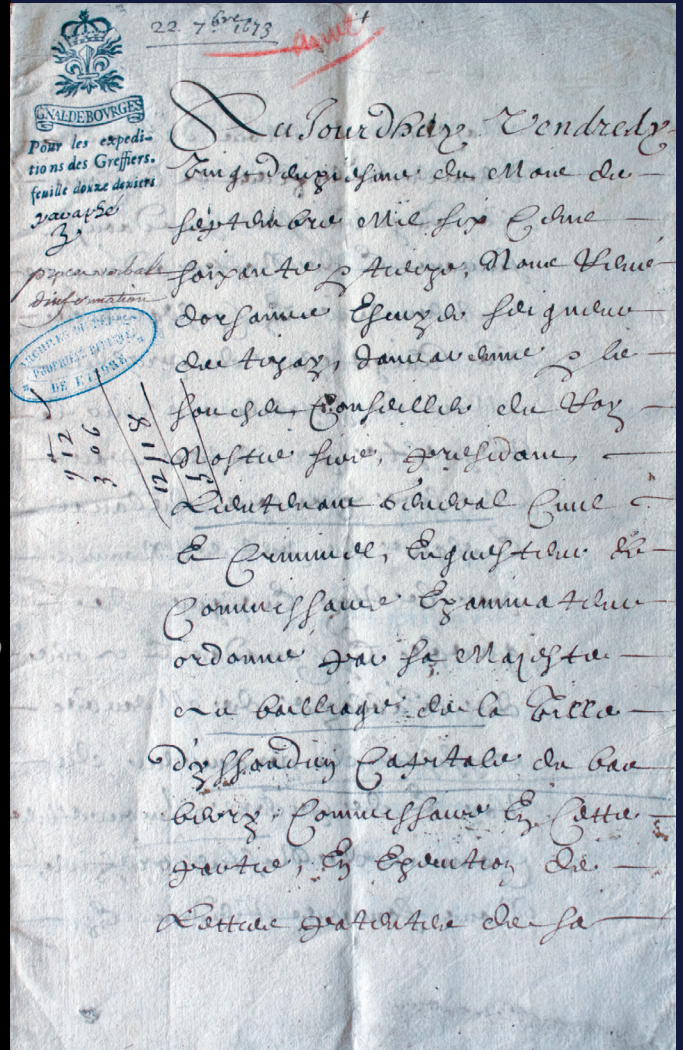 22. 7bre 1673
GNAL DE BOVRGES
Pour les expedi-
tions des Greffiers.
feuille douze deniers
paraphé
proces verbal
dinformation
ARCHIVES DE
PROPRIÉTÉ
DE L'INDRE
912
306
1218
Aujourdhuy Vendredy
Vingt deuxiesme du Mois de
septembre Mil six Cens
soixante & treize, Nous René
dorsanne Escuyer seigneur
de tizay, & le
Conseiller du Roy
Nostre sire, president,
Lieutenant General Civil
Et Criminel, Enquesteur &
Commissaire Examinateur
ordonné par sa Majesté
au bailliage de la Ville
d'yssoudun Capitale du bas
berry, Commissaire En Cette
partie, En Execution des
Lettres patentes de sa